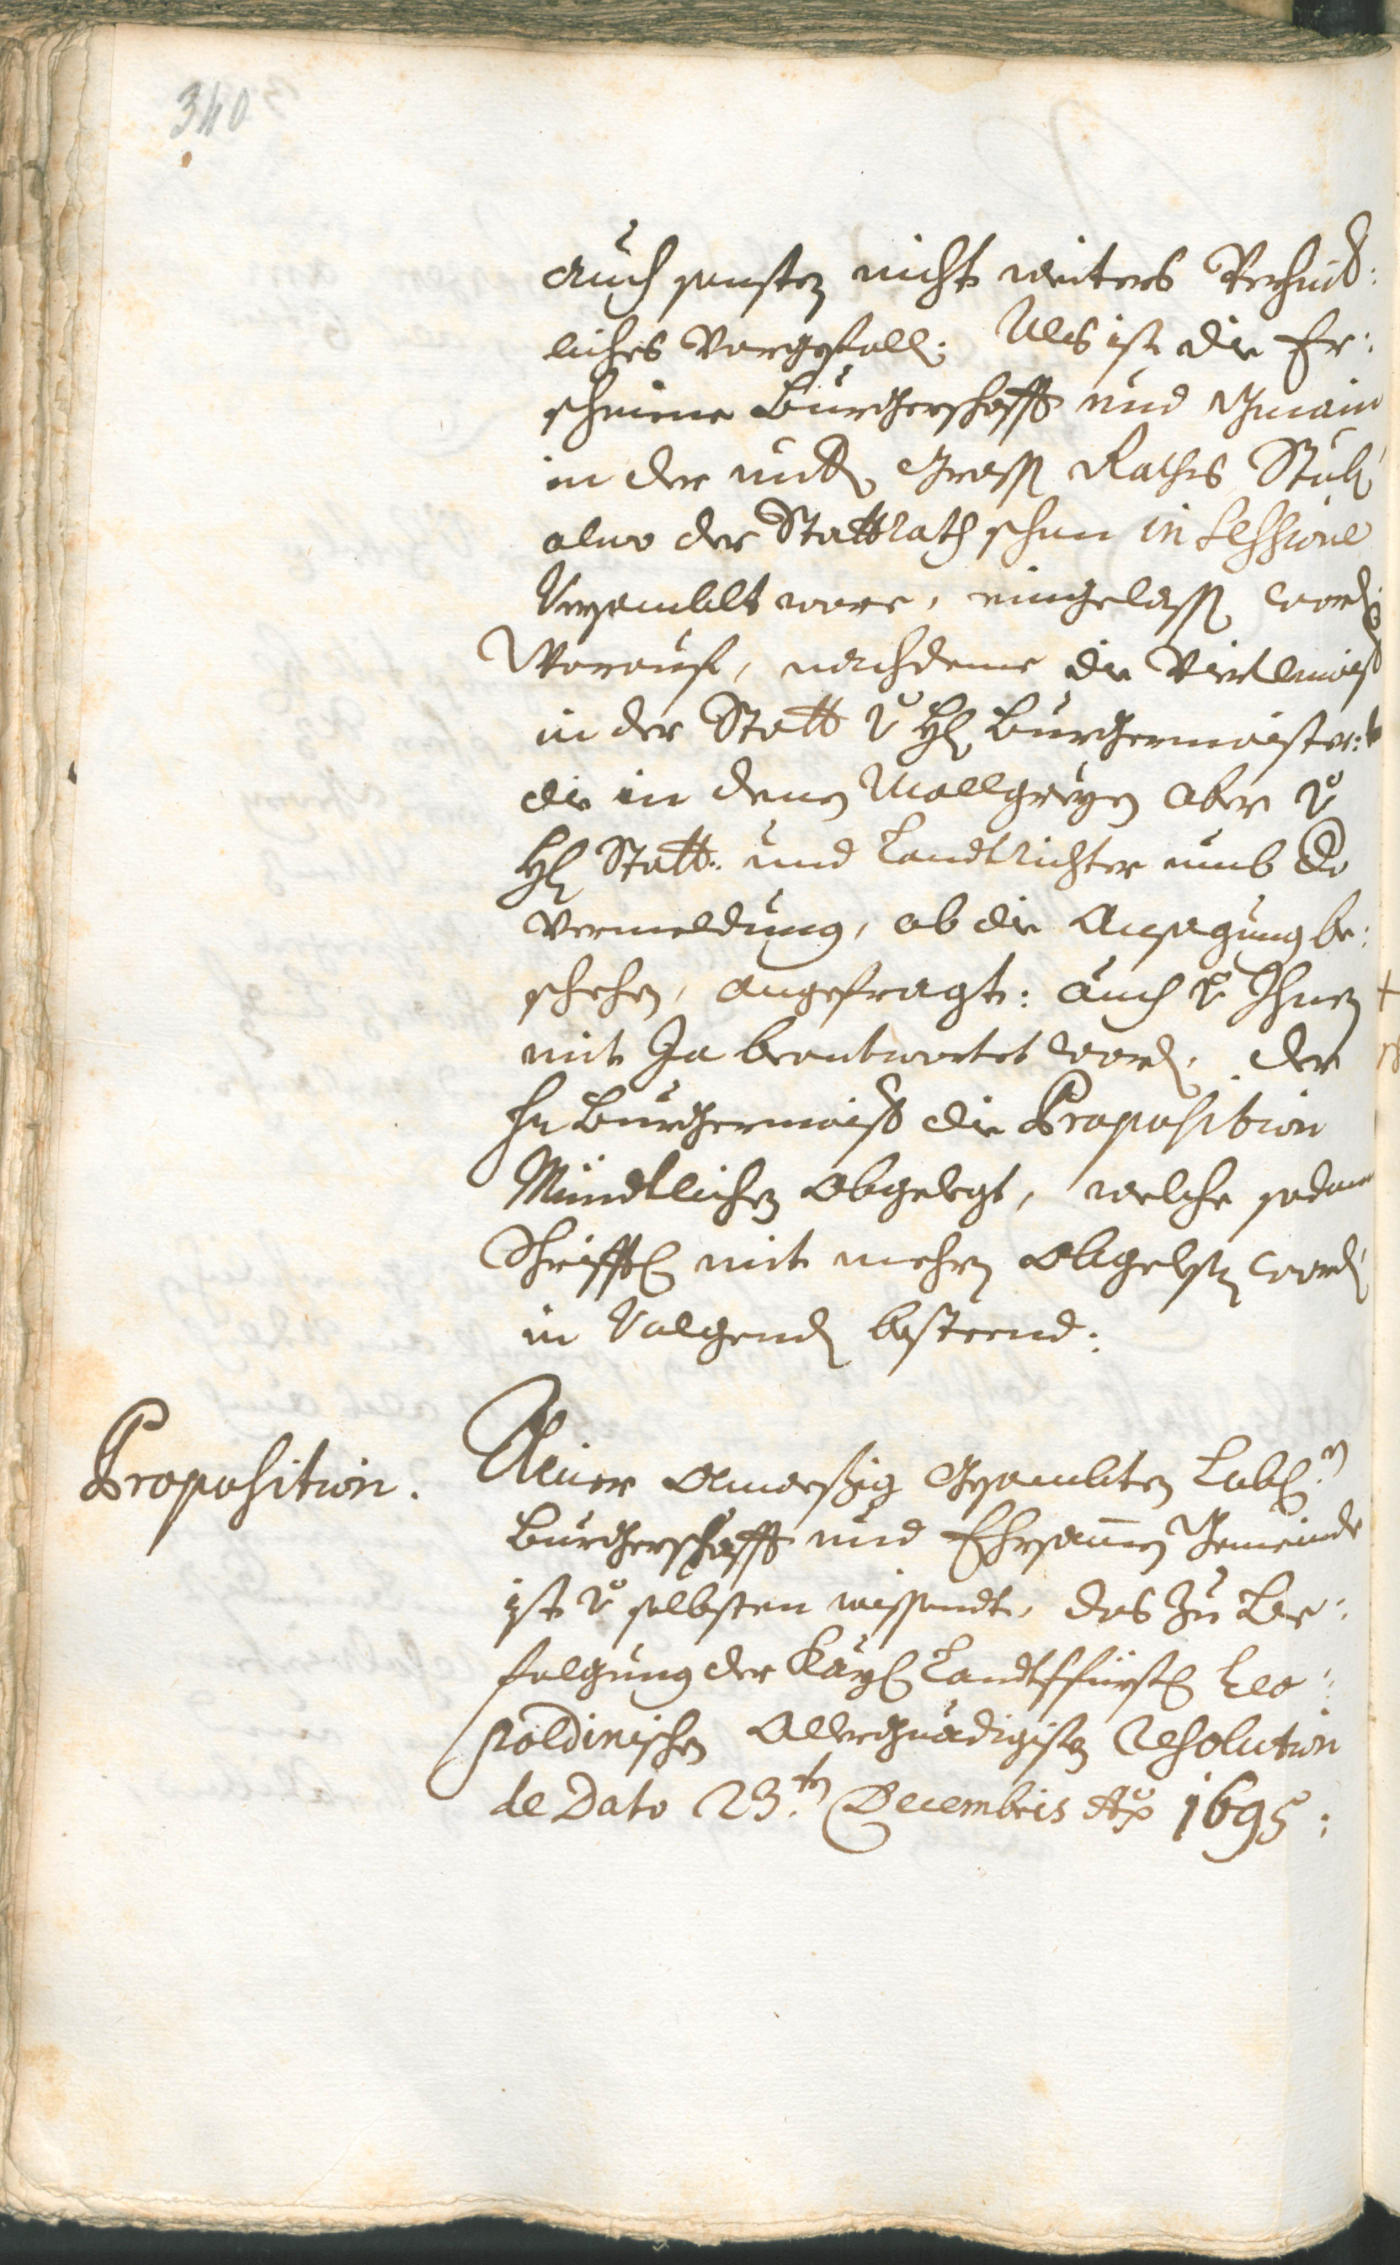 340
auch sonsten nicht weiters Verhind:
liches Vorgefall: Als ist die Er:
schinene Burgerschafft und Gmain
in der undtern Grossen Raths Stuben
alwo der Stattrath schon in Sessione
Versamblet ware, eingelassen worden
Worauf, nachdeme die Viertlmaister
in der Statt von Herrn Burgermaister:
die in denen Mallgreyen aber von
Herrn Statt: und Landtrichter umb die
Vermeldung, ob die Ansagung be:
schehen, angefragt: auch von Ihnen
mit Ja beantwortet worden, der
Herr Burgermaister die Proposition
Mündtlichen abgelegt, welche sodann
Schrifftlich mit mehren abgelesen worden
in Volgenden bestehend:
Proposition.
Ainer Anwesstig Gesambten Lobl:n
Burgerschafft und Ehrsammen Gemeinde
ist von selbsten wissendt, das zu Be:
folgung der Kayl Landtsfürstl Leo:
poldinischen Allergnädigisten Resolution
de Dato 23.ten Decembris Ao 1695: